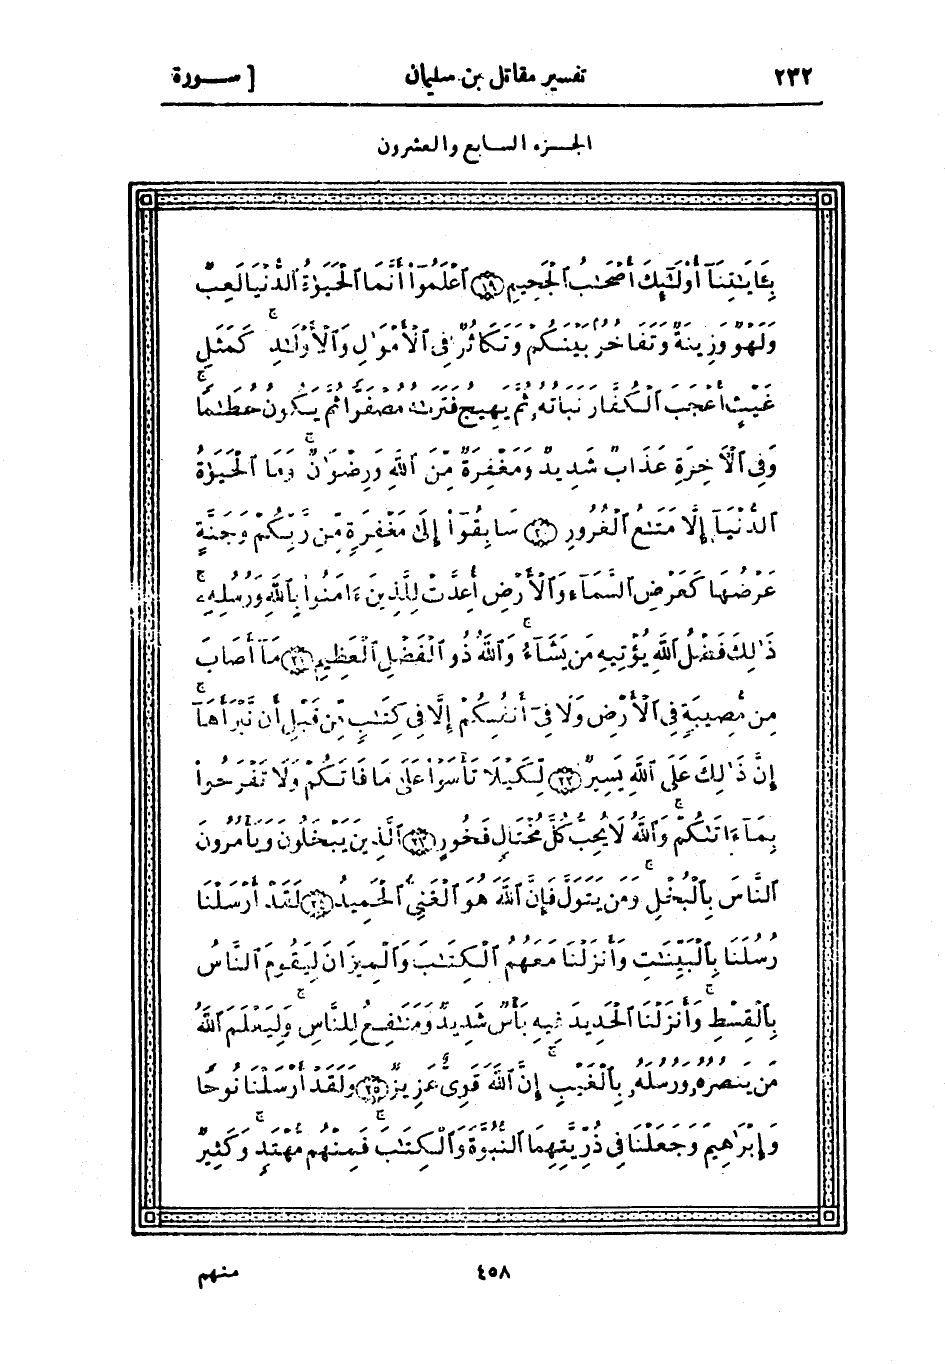 ٢٣٢ تفسير مقاتل بن سليمان [ سورة
الجزء السابع والعشرون
بِـَٔايَـٰتِنَآ أُوْلَـٰٓئِكَ أَصْحَـٰبُ ٱلْجَحِيمِ ۝١٩ ٱعْلَمُوٓاْ أَنَّمَا ٱلْحَيَوٰةُ ٱلدُّنْيَا لَعِبٌ
وَلَهْوٌ وَزِينَةٌ وَتَفَاخُرٌۢ بَيْنَكُمْ وَتَكَاثُرٌ فِى ٱلْأَمْوَٰلِ وَٱلْأَوْلَـٰدِ ۖ كَمَثَلِ
غَيْثٍ أَعْجَبَ ٱلْكُفَّارَ نَبَاتُهُۥ ثُمَّ يَهِيجُ فَتَرَىٰهُ مُصْفَرًّا ثُمَّ يَكُونُ حُطَـٰمًا ۖ
وَفِى ٱلْأَخِرَةِ عَذَابٌ شَدِيدٌ وَمَغْفِرَةٌ مِّنَ ٱللَّهِ وَرِضْوَٰنٌ ۚ وَمَا ٱلْحَيَوٰةُ
ٱلدُّنْيَآ إِلَّا مَتَـٰعُ ٱلْغُرُورِ ۝٢٠ سَابِقُوٓاْ إِلَىٰ مَغْفِرَةٍ مِّن رَّبِّكُمْ وَجَنَّةٍ
عَرْضُهَا كَعَرْضِ ٱلسَّمَآءِ وَٱلْأَرْضِ أُعِدَّتْ لِلَّذِينَ ءَامَنُواْ بِٱللَّهِ وَرُسُلِهِۦ ۚ
ذَٰلِكَ فَضْلُ ٱللَّهِ يُؤْتِيهِ مَن يَشَآءُ ۚ وَٱللَّهُ ذُو ٱلْفَضْلِ ٱلْعَظِيمِ ۝٢١ مَآ أَصَابَ
مِن مُّصِيبَةٍ فِى ٱلْأَرْضِ وَلَا فِىٓ أَنفُسِكُمْ إِلَّا فِى كِتَـٰبٍ مِّن قَبْلِ أَن نَّبْرَأَهَآ ۚ
إِنَّ ذَٰلِكَ عَلَى ٱللَّهِ يَسِيرٌ ۝٢٢ لِّكَيْلَا تَأْسَوْاْ عَلَىٰ مَا فَاتَكُمْ وَلَا تَفْرَحُواْ
بِمَآ ءَاتَىٰكُمْ ۗ وَٱللَّهُ لَا يُحِبُّ كُلَّ مُخْتَالٍ فَخُورٍ ۝٢٣ ٱلَّذِينَ يَبْخَلُونَ وَيَأْمُرُونَ
ٱلنَّاسَ بِٱلْبُخْلِ ۗ وَمَن يَتَوَلَّ فَإِنَّ ٱللَّهَ هُوَ ٱلْغَنِىُّ ٱلْحَمِيدُ ۝٢٤ لَقَدْ أَرْسَلْنَا
رُسُلَنَا بِٱلْبَيِّنَـٰتِ وَأَنزَلْنَا مَعَهُمُ ٱلْكِتَـٰبَ وَٱلْمِيزَانَ لِيَقُومَ ٱلنَّاسُ
بِٱلْقِسْطِ ۖ وَأَنزَلْنَا ٱلْحَدِيدَ فِيهِ بَأْسٌ شَدِيدٌ وَمَنَـٰفِعُ لِلنَّاسِ وَلِيَعْلَمَ ٱللَّهُ
مَن يَنصُرُهُۥ وَرُسُلَهُۥ بِٱلْغَيْبِ ۚ إِنَّ ٱللَّهَ قَوِىٌّ عَزِيزٌ ۝٢٥ وَلَقَدْ أَرْسَلْنَا نُوحًا
وَإِبْرَٰهِيمَ وَجَعَلْنَا فِى ذُرِّيَّتِهِمَا ٱلنُّبُوَّةَ وَٱلْكِتَـٰبَ ۖ فَمِنْهُم مُّهْتَدٍ ۖ وَكَثِيرٌ
٤٥٨ منهم